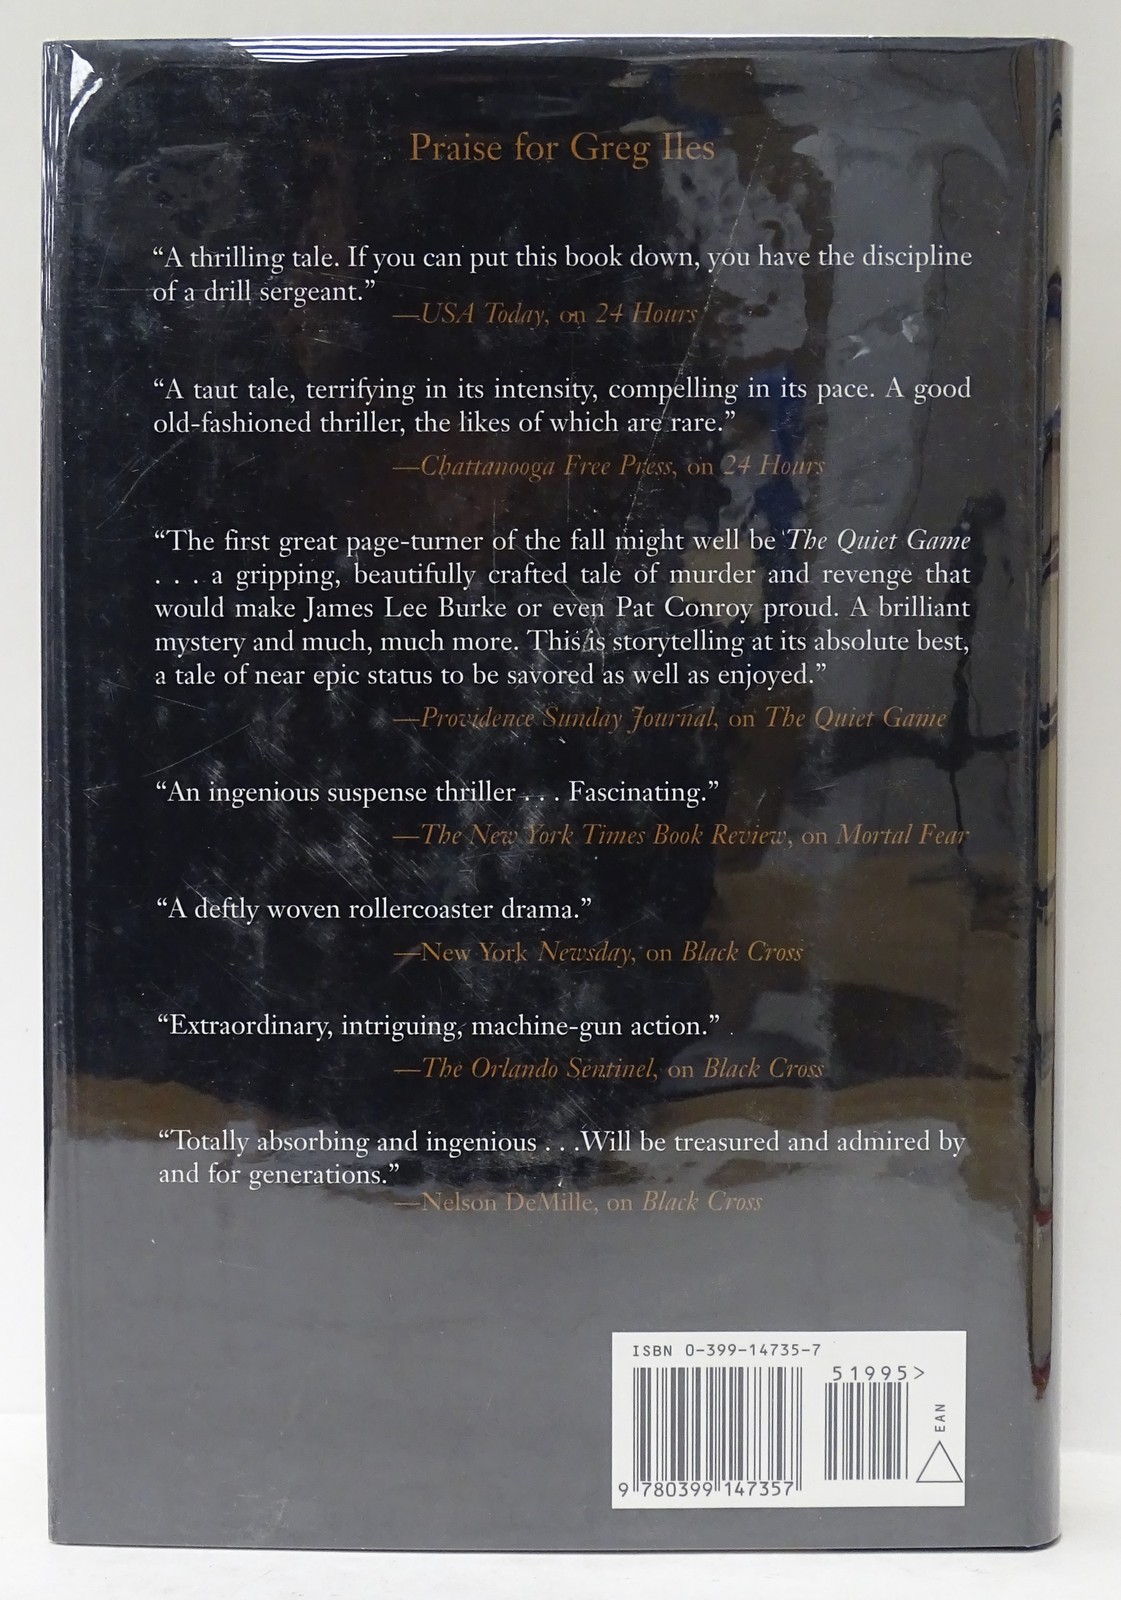 Praise for Greg Iles
“A thrilling tale. If you can put this book down, you have the discipline
of a drill sergeant.”
—USA Today, on 24 Hours
“A taut tale, terrifying in its intensity, compelling in its pace. A good
old-fashioned thriller, the likes of which are rare.”
—Chattanooga Free Press, on 24 Hours
“The first great page-turner of the fall might well be The Quiet Game
. . . a gripping, beautifully crafted tale of murder and revenge that
would make James Lee Burke or even Pat Conroy proud. A brilliant
mystery and much, much more. This is storytelling at its absolute best,
a tale of near epic status to be savored as well as enjoyed.”
—Providence Sunday Journal, on The Quiet Game
“An ingenious suspense thriller . . . Fascinating.”
—The New York Times Book Review, on Mortal Fear
“A deftly woven rollercoaster drama.”
—New York Newsday, on Black Cross
“Extraordinary, intriguing, machine-gun action.”
—The Orlando Sentinel, on Black Cross
“Totally absorbing and ingenious . . .Will be treasured and admired by
and for generations.”
—Nelson DeMille, on Black Cross
ISBN 0-399-14735-7
51995>
EAN
9 780399 147357